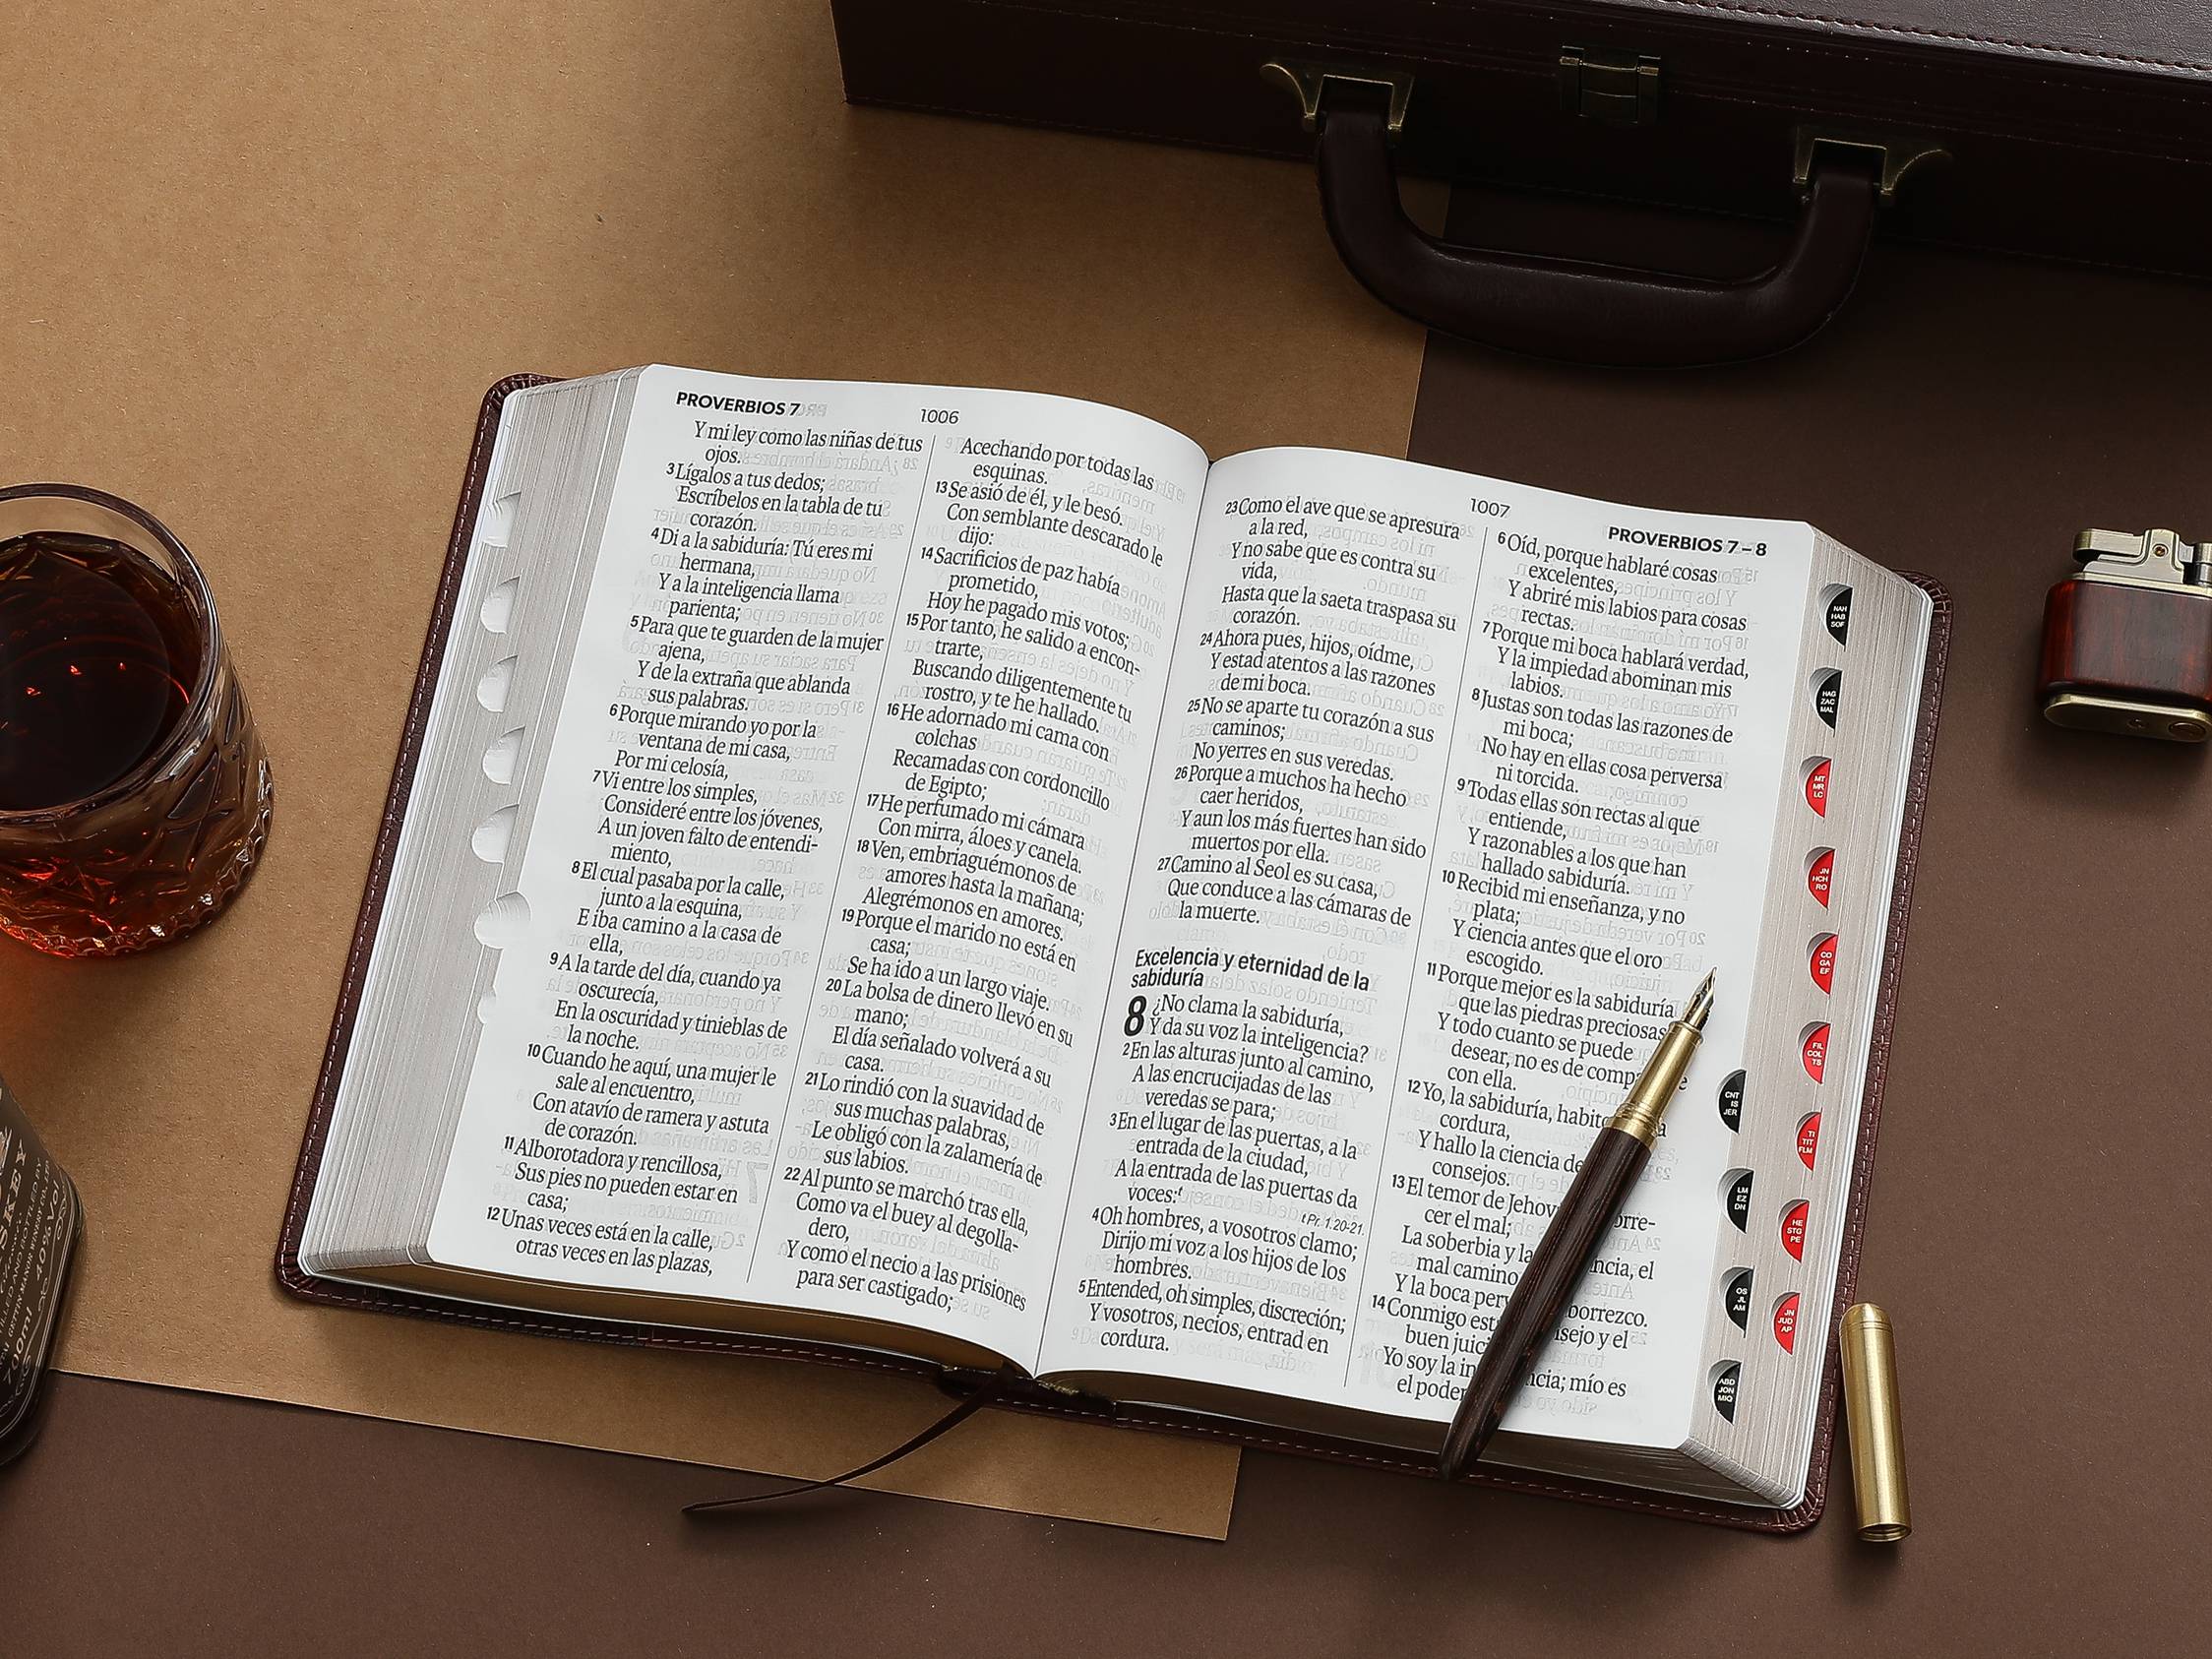 PROVERBIOS 7
1006
Y mi ley como las niñas de tus
ojos.
3 Lígalos a tus dedos;
Escríbelos en la tabla de tu
corazón.
4 Di a la sabiduría: Tú eres mi
hermana,
Y a la inteligencia llama
parienta;
5 Para que te guarden de la mujer
ajena,
Y de la extraña que ablanda
sus palabras.
6 Porque mirando yo por la
ventana de mi casa,
Por mi celosía,
7 Vi entre los simples,
Consideré entre los jóvenes,
A un joven falto de entendi-
miento,
8 El cual pasaba por la calle,
junto a la esquina,
E iba camino a la casa de
ella,
9 A la tarde del día, cuando ya
oscurecía,
En la oscuridad y tinieblas de
la noche.
10 Cuando he aquí, una mujer le
sale al encuentro,
Con atavío de ramera y astuta
de corazón.
11 Alborotadora y rencillosa,
Sus pies no pueden estar en
casa;
12 Unas veces está en la calle,
otras veces en las plazas,
Acechando por todas las
esquinas.
13 Se asió de él, y le besó.
Con semblante descarado le
dijo:
14 Sacrificios de paz había
prometido,
Hoy he pagado mis votos;
15 Por tanto, he salido a encon-
trarte,
Buscando diligentemente tu
rostro, y te he hallado.
16 He adornado mi cama con
colchas
Recamadas con cordoncillo
de Egipto;
17 He perfumado mi cámara
Con mirra, áloes y canela.
18 Ven, embriaguémonos de
amores hasta la mañana;
Alegrémonos en amores.
19 Porque el marido no está en
casa;
Se ha ido a un largo viaje.
20 La bolsa de dinero llevó en su
mano;
El día señalado volverá a su
casa.
21 Lo rindió con la suavidad de
sus muchas palabras,
Le obligó con la zalamería de
sus labios.
22 Al punto se marchó tras ella,
Como va el buey al degolla-
dero,
Y como el necio a las prisiones
para ser castigado;
1007
PROVERBIOS 7 – 8
23 Como el ave que se apresura
a la red,
Y no sabe que es contra su
vida,
Hasta que la saeta traspasa su
corazón.
24 Ahora pues, hijos, oídme,
Y estad atentos a las razones
de mi boca.
25 No se aparte tu corazón a sus
caminos;
No yerres en sus veredas.
26 Porque a muchos ha hecho
caer heridos,
Y aun los más fuertes han sido
muertos por ella.
27 Camino al Seol es su casa,
Que conduce a las cámaras de
la muerte.
Excelencia y eternidad de la
sabiduría
8 ¿No clama la sabiduría,
Y da su voz la inteligencia?
2 En las alturas junto al camino,
A las encrucijadas de las
veredas se para;
3 En el lugar de las puertas, a la
entrada de la ciudad,
A la entrada de las puertas da
voces:t
t Pr. 1.20-21.
4 Oh hombres, a vosotros clamo;
Dirijo mi voz a los hijos de los
hombres.
5 Entended, oh simples, discreción;
Y vosotros, necios, entrad en
cordura.
6 Oíd, porque hablaré cosas
excelentes,
Y abriré mis labios para cosas
rectas.
7 Porque mi boca hablará verdad,
Y la impiedad abominan mis
labios.
8 Justas son todas las razones de
mi boca;
No hay en ellas cosa perversa
ni torcida.
9 Todas ellas son rectas al que
entiende,
Y razonables a los que han
hallado sabiduría.
10 Recibid mi enseñanza, y no
plata;
Y ciencia antes que el oro
escogido.
11 Porque mejor es la sabiduría
que las piedras preciosas;
Y todo cuanto se puede
desear, no es de
con ella.
12 Yo, la sabiduría, habito
cordura,
Y hallo la ciencia de
consejos.
13 El temor de
cer el mal;
La soberbia y la el
mal camino
Y la boca
14 Conmigo y el
buen
Yo soy la mío es
el poder
NAH
HAB
SOF
HAG
ZAC
MAL
MT
MR
LC
JN
HCH
RO
CO
GA
EF
FIL
COL
TS
TI
TIT
FLM
HE
STG
PE
JN
JUD
AP
CNT
IS
JER
LM
EZ
DN
OS
JL
AM
ABD
JON
MIQ
700ml 40%Vol